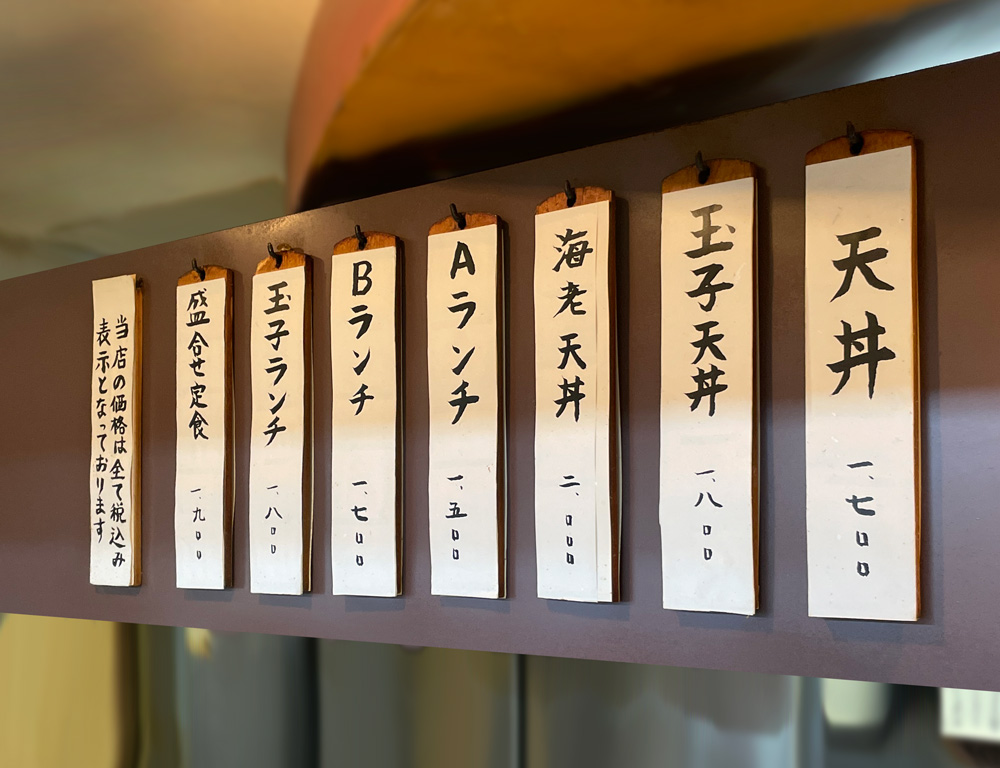 天丼
一、七〇〇
玉子天丼
一、八〇〇
海老天丼
二、〇〇〇
Aランチ
一、五〇〇
Bランチ
一、七〇〇
玉子ランチ
一、八〇〇
盛合せ定食
一、九〇〇
当店の価格は全て税込み
表示となっております